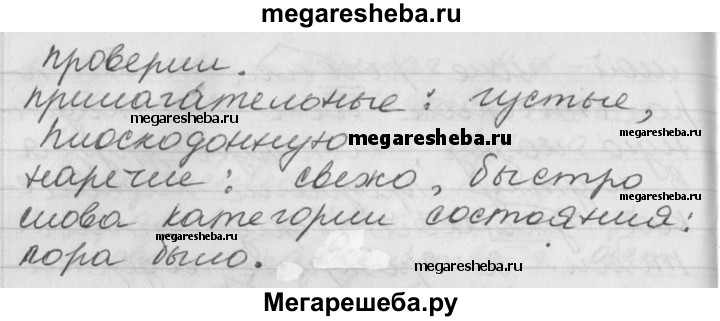 megaresheba.ru
проверил.
прилагательные: густые,
megaresheba.ru
megaresheba.ru
плоскодонную megaresheba.ru
наречие: свежо, быстро
megaresheba.ru
слова категории состояния:
megaresheba.ru
пора было.
megaresheba.ru
Мегарешеба.ру